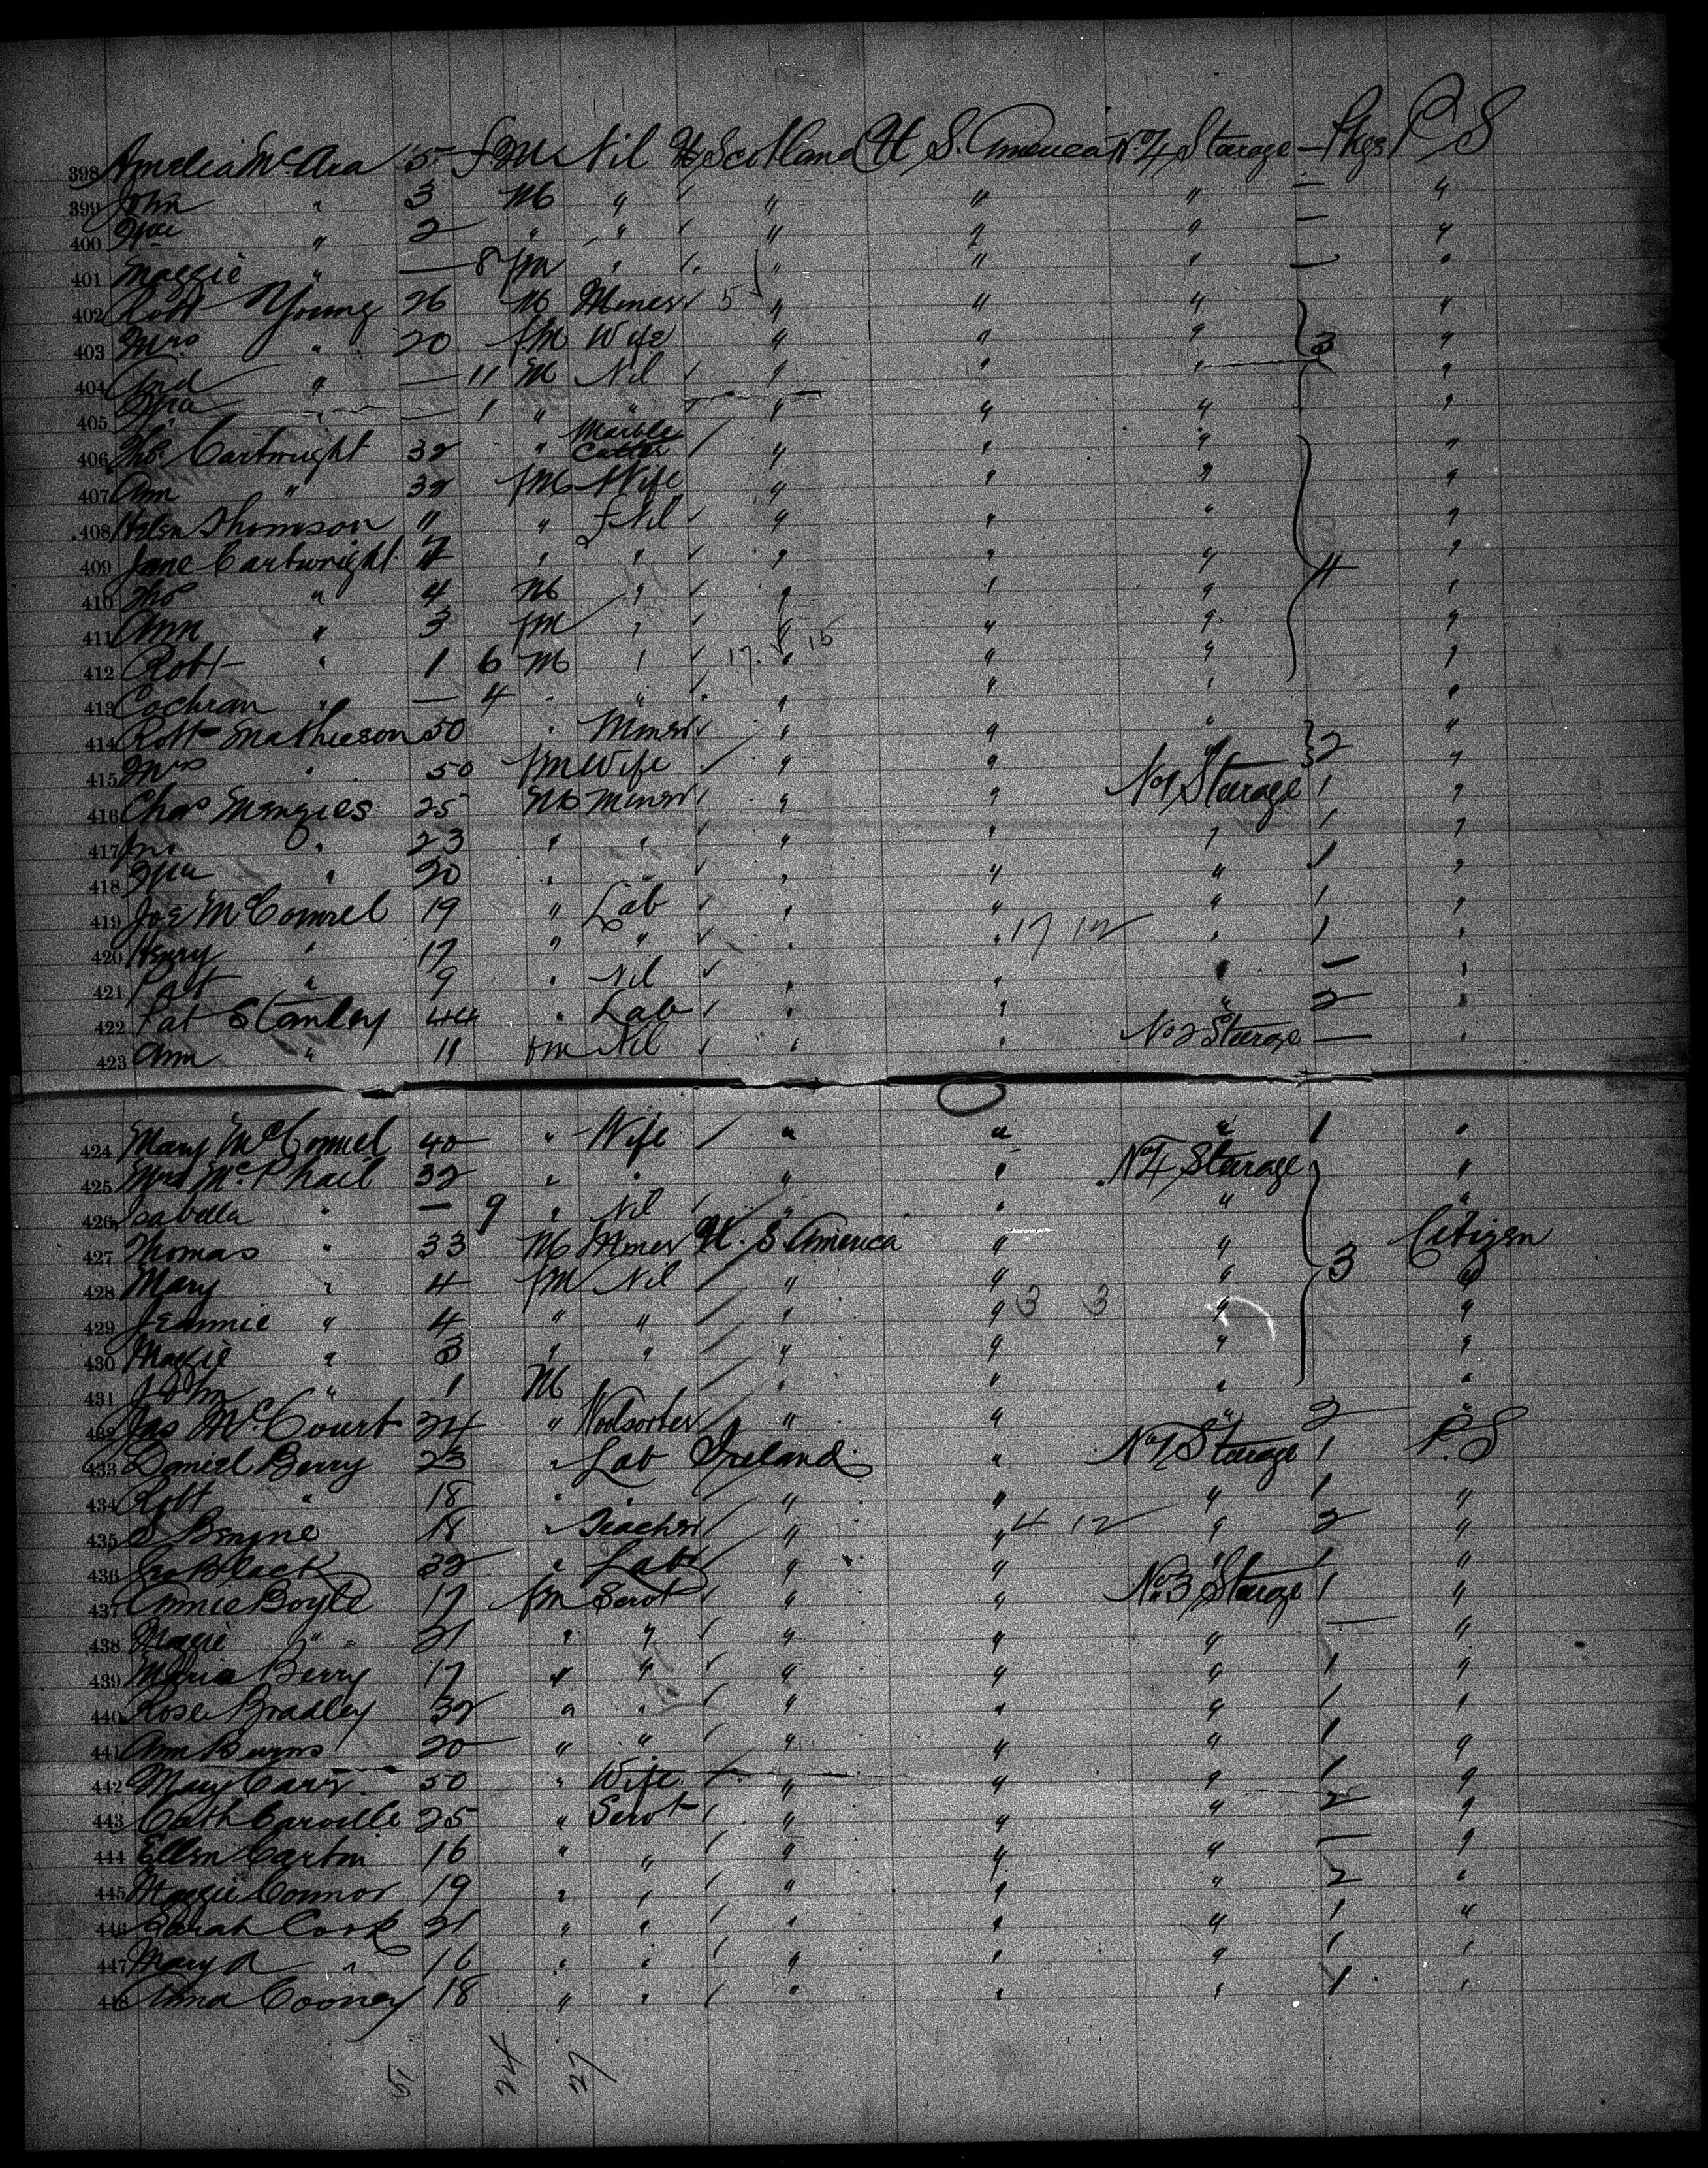 398 Amelia McAra 5 fM Nil Scotland U S. America No 4 Starage — Pkgs P S
399 John " 3 M " " " " — "
400 Wm " 2 " " " " " — "
401 Maggie " — 8 fm " " " " — "
402 Robt Young 26 M Miner 5 " " " "
403 Mrs " 20 fM Wife " " " 3 "
404 And " — 11 M Nil " " " "
405 " — 1 " " " " " "
406 Thos Cartwright 32 " Marble Cutter " " " "
407 Ann " 32 fM Wife " " " "
408 Helen Thomson 11 " Nil " " " "
409 Jane Cartwright 7 " " " " " 4 "
410 Tho " 4 M " " " " "
411 Ann " 3 fM " " " " "
412 Robt " 1 6 M " 17 15 " " " "
413 Cochran " — 4 " " " " " "
414 Robt Mathieson 50 " Miner " " " 2 "
415 Mrs " 50 fm Wife " " " "
416 Chas Menzies 25 M Miner " " No 1 Starage 1 "
417 Jno " 23 " " " " " 1 "
418 Wm " 20 " " " " " 1 "
419 Joe McConnel 19 " Lab " " " 1 "
420 Henry " 17 " " " " 17 12 " 1 "
421 Patt " 9 " Nil " " " — "
422 Pat Stanley 44 " Lab " " " 2 "
423 Ann " 11 fm Nil " " No 2 Starage — "
424 Mary McConnel 40 " Wife " " " 1 "
425 Mrs McPhail 32 " " " " No 4 Starage "
426 Isabella " — 9 " Nil " " " "
427 Thomas " 33 M Miner U. S America " " 3 Citizen
428 Mary " 4 fM Nil " " " "
429 Jeannie " 4 " " " " 3 3 " "
430 Maggie " 3 " " " " " "
431 John " 1 M " " " "
432 Jas McCourt 24 " Woolsorter " " " 2 "
433 Daniel Berry 23 " Lab Ireland " No 1 Starage 1 P. S
434 Robt " 18 " " " " " 1 "
435 S Beyne 18 " Teacher " " 4 12 " 2 "
436 Black 32 " Lab " " " 1 "
437 Annie Boyle 17 fm Servt " " No 3 Starage 1 "
438 Maggie " 21 " " " " " — "
439 Maria Berry 17 " " " " " 1 "
440 Rose Bradley 32 " " " " " 1 "
441 Ann Burns 20 " " " " " 1 "
442 Mary Carr 50 " Wife " " " 1 "
443 Cath Carville 25 " Servt " " " 2 "
444 Ellen Cartin 16 " " " " " — "
445 Maggie Connor 19 " " " " " 2 "
446 Sarah Cook 21 " " " " " 1 "
447 Mary A " 16 " " " " " 1 "
448 Anna Cooney 18 " " " " " 1 "
24 27